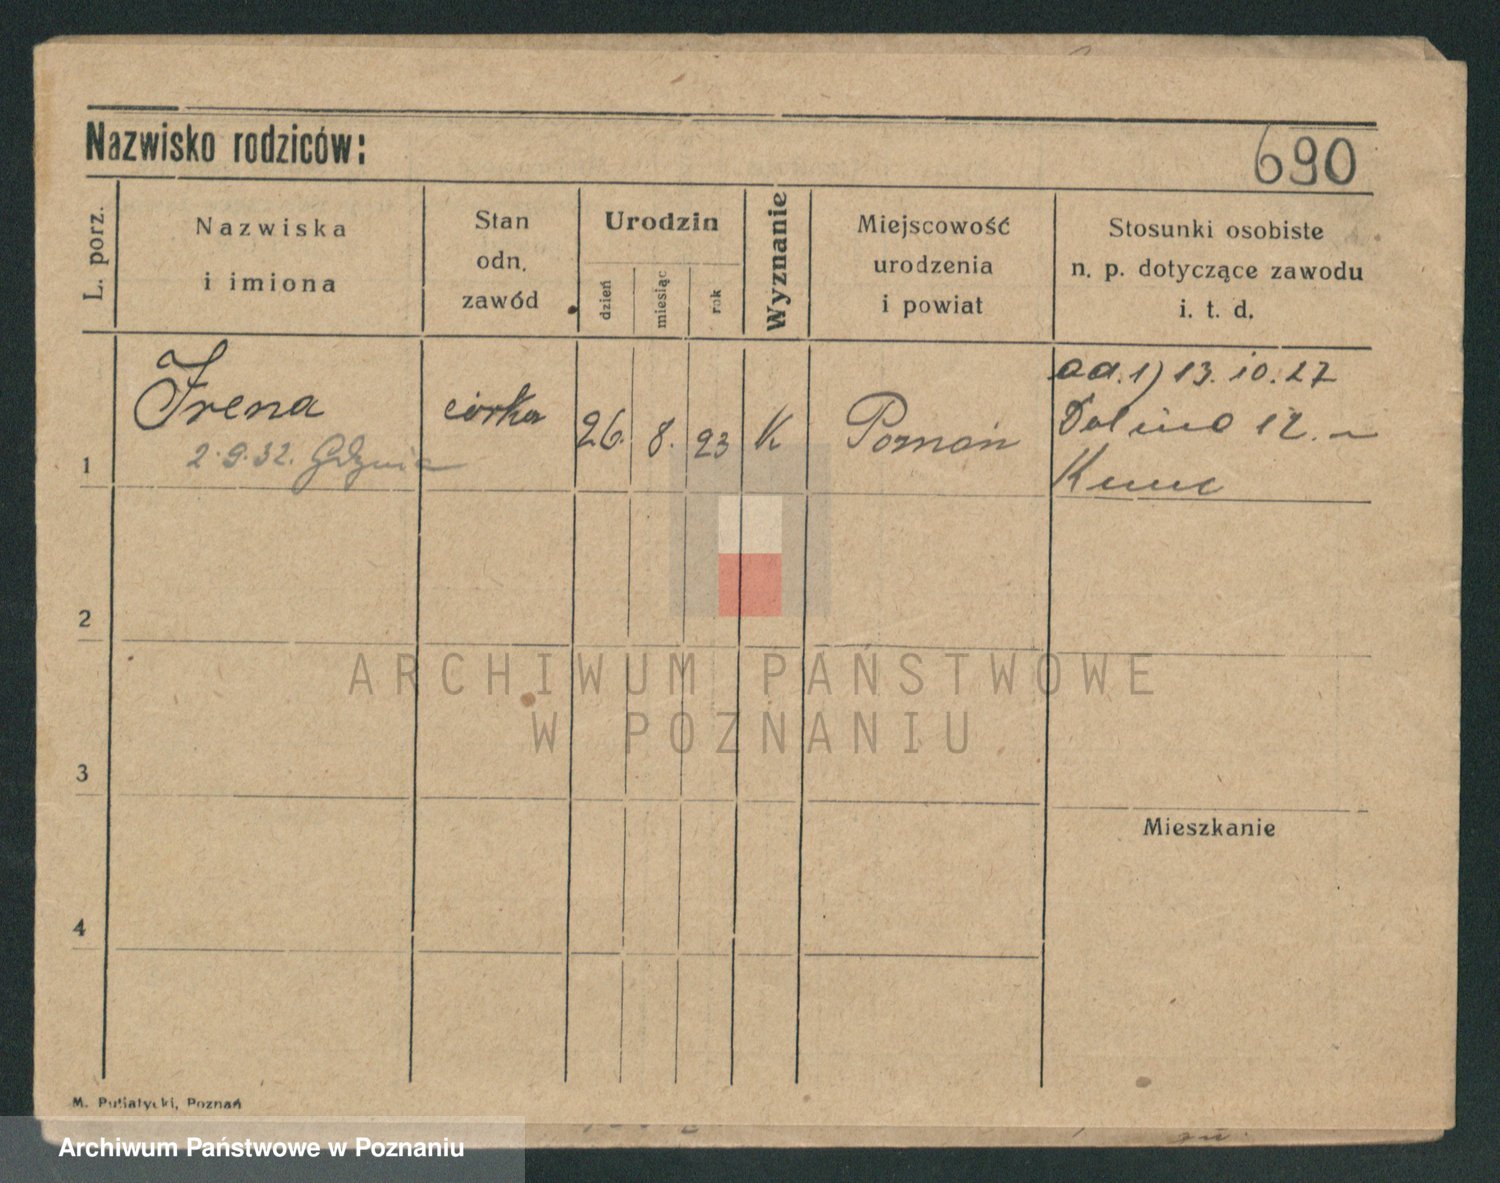 Nazwisko rodziców:
690
L. porz.
Nazwiska
i imiona
Stan
odn.
zawód
Urodzin
dzień
miesiąc
rok
Wyznanie
Miejscowość
urodzenia
i powiat
Stosunki osobiste
n. p. dotyczące zawodu
i. t. d.
1
Irena
2.9.32. Gdynia
córka
26. 8. 23
K
Poznań
ad. 1) 13. 10. 27
12.
2
3
4
Mieszkanie
ARCHIWUM PAŃSTWOWE
W POZNANIU
M. Putiatycki, Poznań
Archiwum Państwowe w Poznaniu